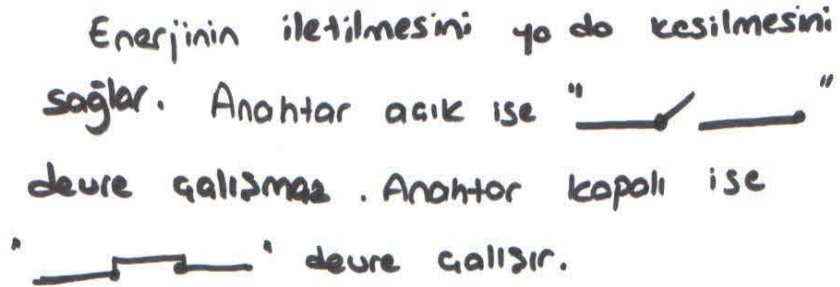 Enerjinin iletilmesini ya da kesilmesini
sağlar. Anahtar açık ise " "
devre çalışmaz. Anahtar kapalı ise
" " devre çalışır.